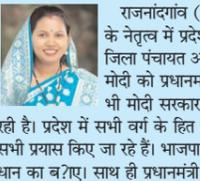 राजनांदगांव (
के नेतृत्व में प्रदे
जिला पंचायत अ
मोदी को प्रधानम
भी मोदी सरकार
रही है। प्रदेश में सभी वर्ग के हित
सभी प्रयास किए जा रहे हैं। भाजपा
धान का ब?ोए। साथ ही प्रधानमंत्री